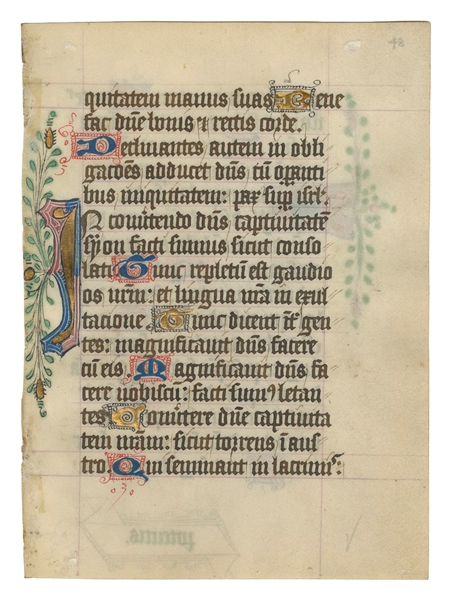 48
quitatem manus suas Bene
fac dñe bonis ⁊ rectis corde.
Declinantes autem in obli
gacões adducet dñs cū opanti
bus iniquitatem: pax sup isrl'.
In conv'tendo dñs captivitatē
syon facti sumus sicut conso
lati Tunc repletū est gaudio
os nr̄m: et lingua nr̄a in exul
tacione Tunc dicent int' gen
tes: magnificavit dñs facere
cū eis. Magnificavit dñs fa
cere nobiscū: facti sumꝰ letan
tes Cōv'tere dñe captivita
tem nr̄am: sicut torrens ī aus
tro. Qui seminant in lacrim':